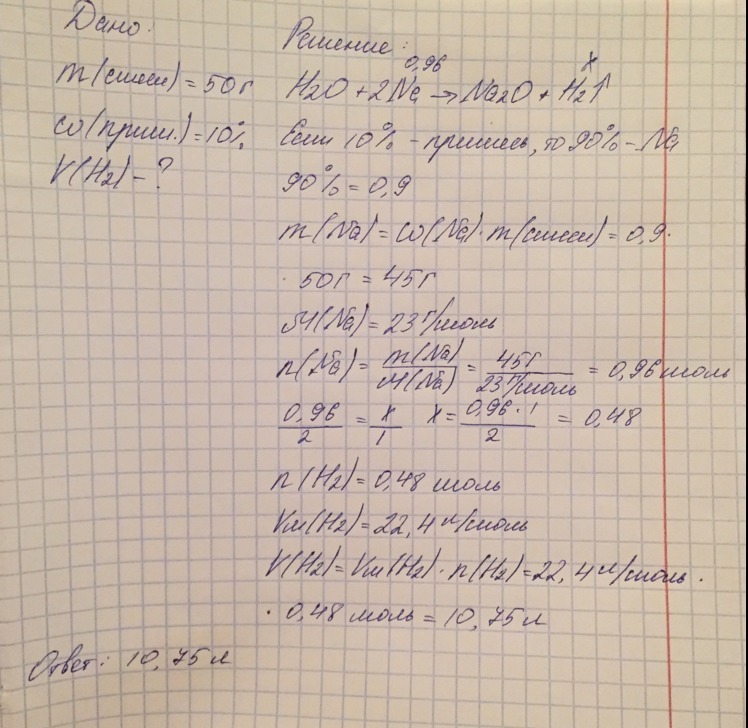 Дано:
m(смеси) = 50 г
ω(прим.) = 10%
V(H₂) - ?
Решение:
0,96 x
H₂O + 2Na → Na₂O + H₂↑
Если 10% - примесь, то 90% - Na
90% = 0,9
m(Na) = ω(Na) · m(смеси) = 0,9 ·
· 50г = 45г
M(Na) = 23 г/моль
n(Na) = m(Na)/M(Na) = 45г/23г/моль = 0,96 моль
0,96/2 = x/1 x = 0,96 · 1/2 = 0,48
n(H₂) = 0,48 моль
Vм(H₂) = 22,4 л/моль
V(H₂) = Vм(H₂) · n(H₂) = 22,4 л/моль ·
· 0,48 моль = 10,75 л
Ответ: 10,75 л